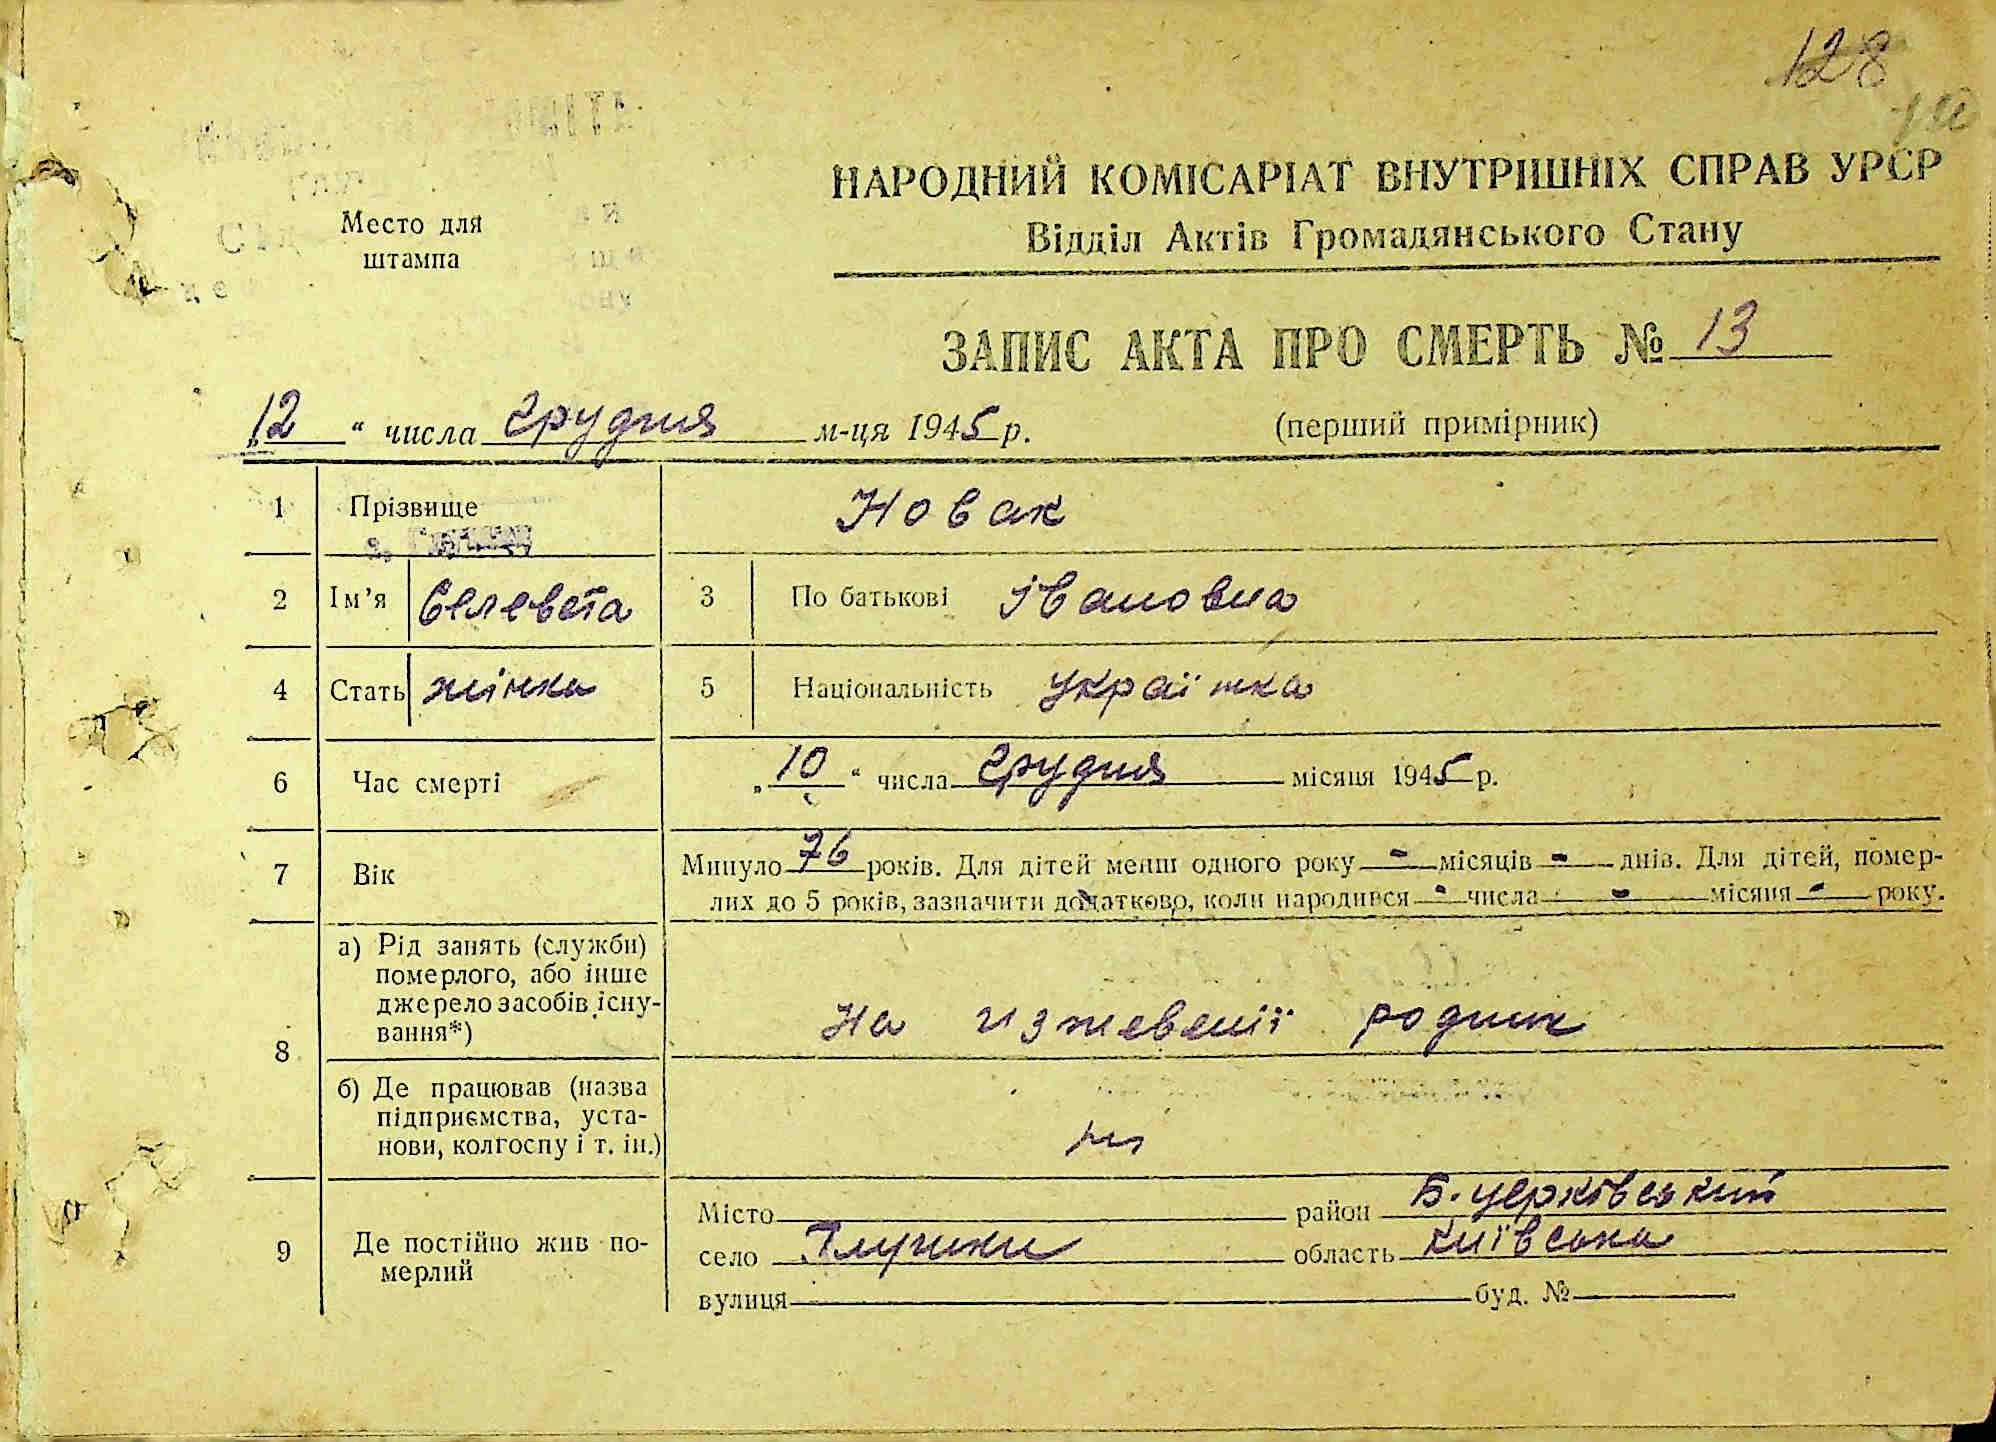 128
НАРОДНИЙ КОМІСАРІАТ ВНУТРІШНІХ СПРАВ УРСР
Відділ Актів Громадянського Стану
Место для
штампа
ЗАПИС АКТА ПРО СМЕРТЬ № 13
„12“ числа грудня м-ця 1945 р.
(перший примірник)
1 Прізвище Новак
2 Ім’я Єлевета 3 По батькові Івановна
4 Стать жінка 5 Національність українка
6 Час смерті „10“ числа грудня місяця 1945 р.
7 Вік Минуло 76 років. Для дітей менш одного року - місяців - днів. Для дітей, помер-
лих до 5 років, зазначити додатково, коли народився - числа - місяця - року.
8 а) Рід занять (служби)
померлого, або інше
джерело засобів існу-
вання*)
На изжевенії родини
б) Де працював (назва
підприємства, уста-
нови, колгоспу і т. ін.)
9 Де постійно жив по-
мерлий
Місто район Б. церківський
село Глушки область Київська
вулиця буд. №